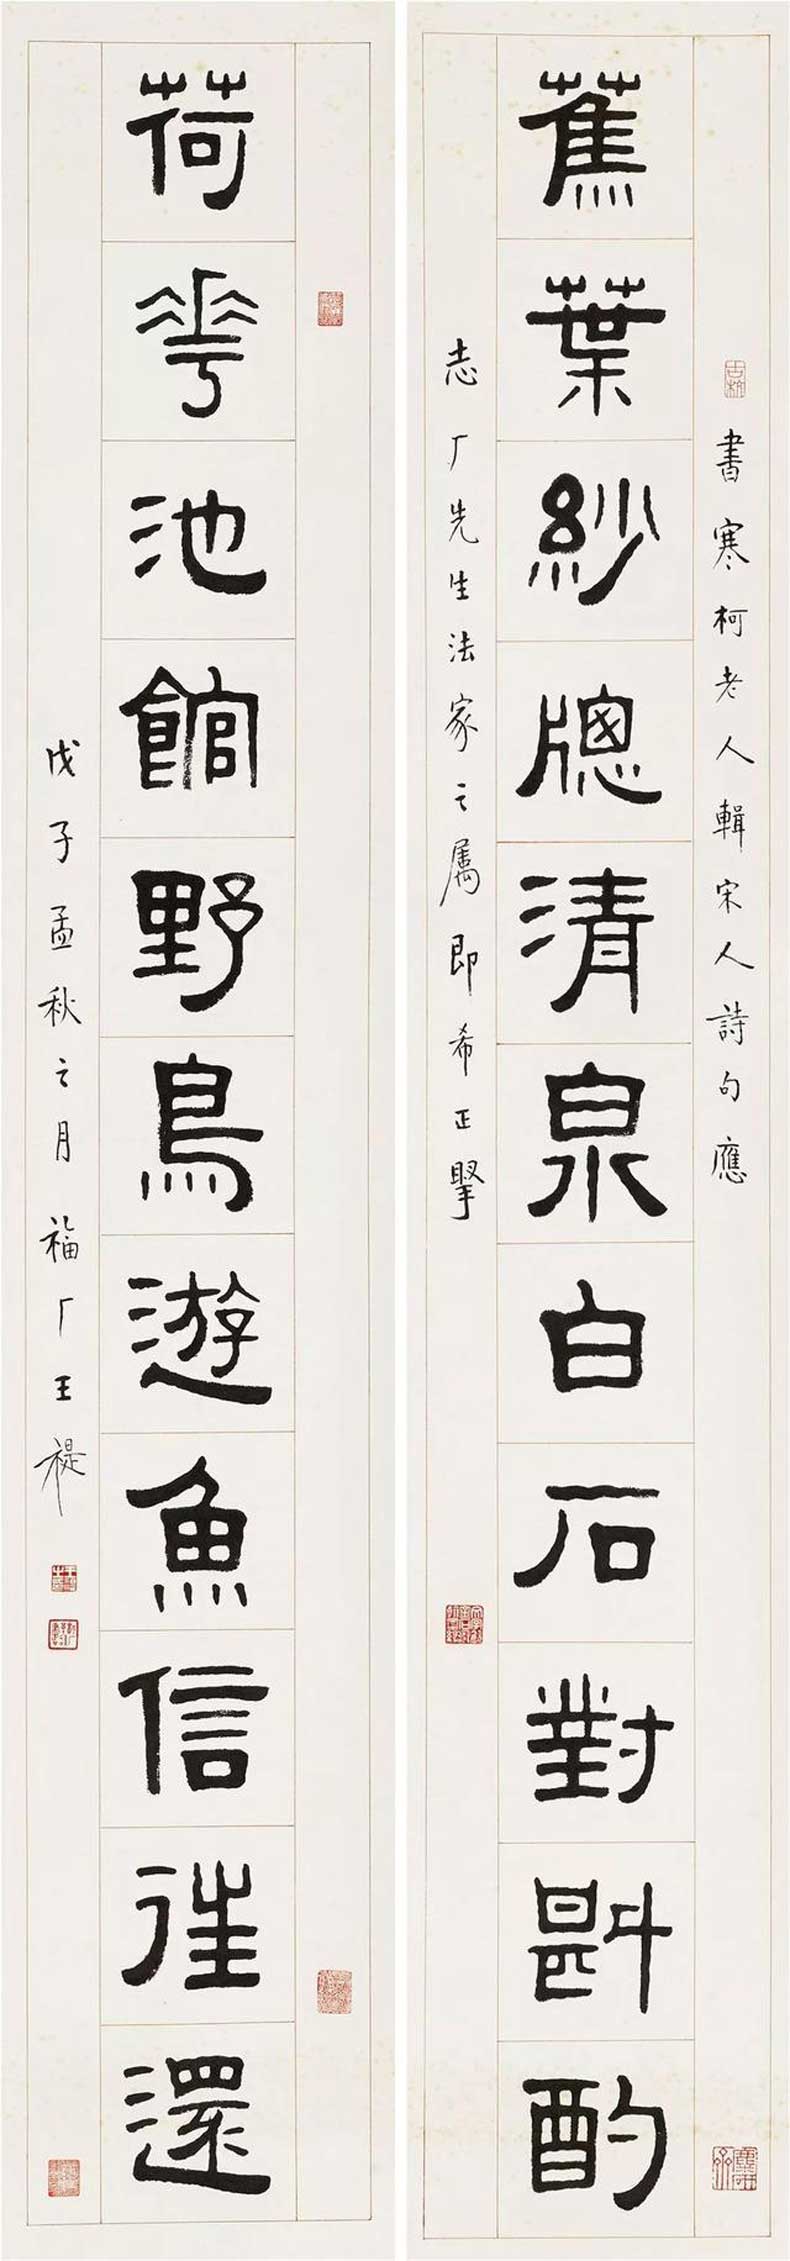 書寒柯老人輯宋人詩句應
蕉葉紗牕清泉白石對斟酌
志厂先生法家之属即希正掔
荷華池館野鳥遊魚信往還
戊子孟秋之月福厂王禔